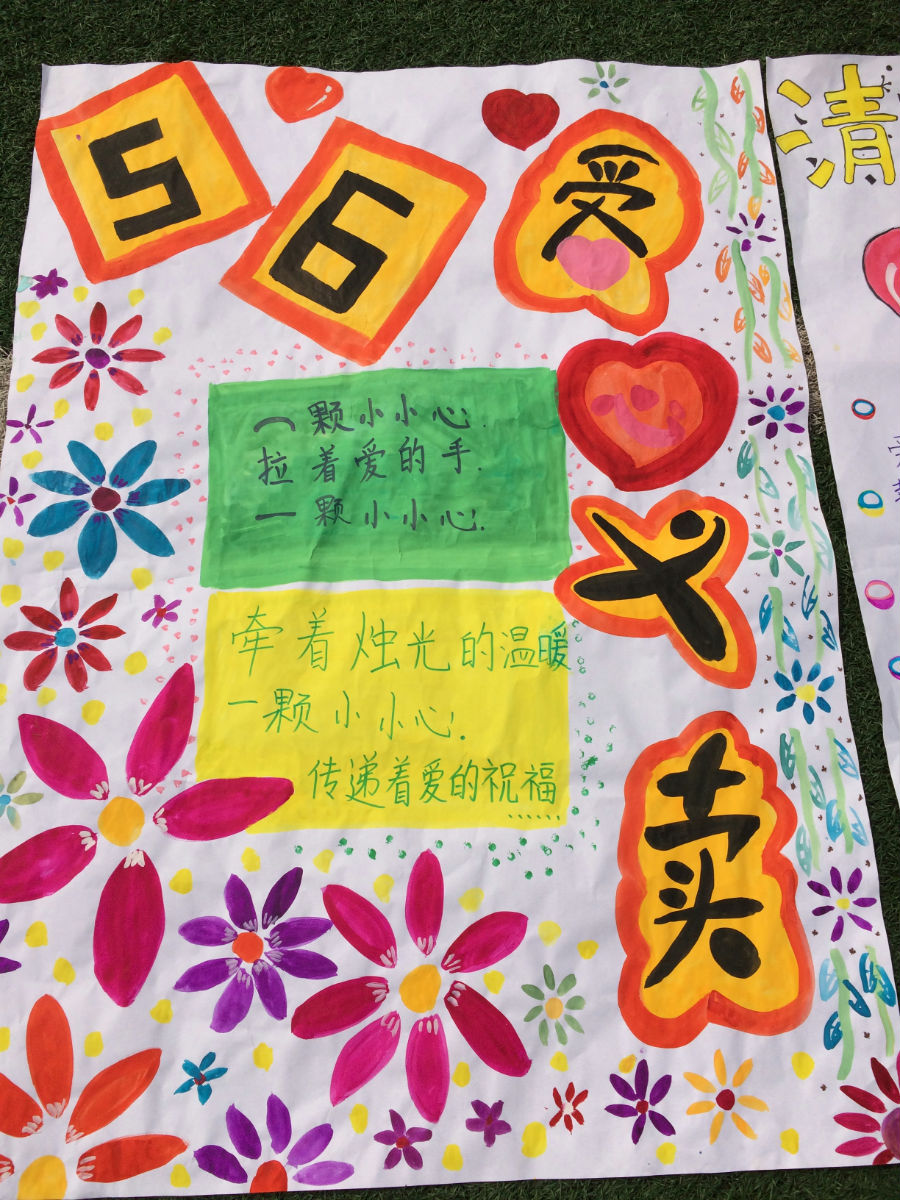 56爱
义
卖
一颗小小心.
拉着爱的手.
一颗小小心.
牵着烛光的温暖
一颗小小心.
传递着爱的祝福
......
清